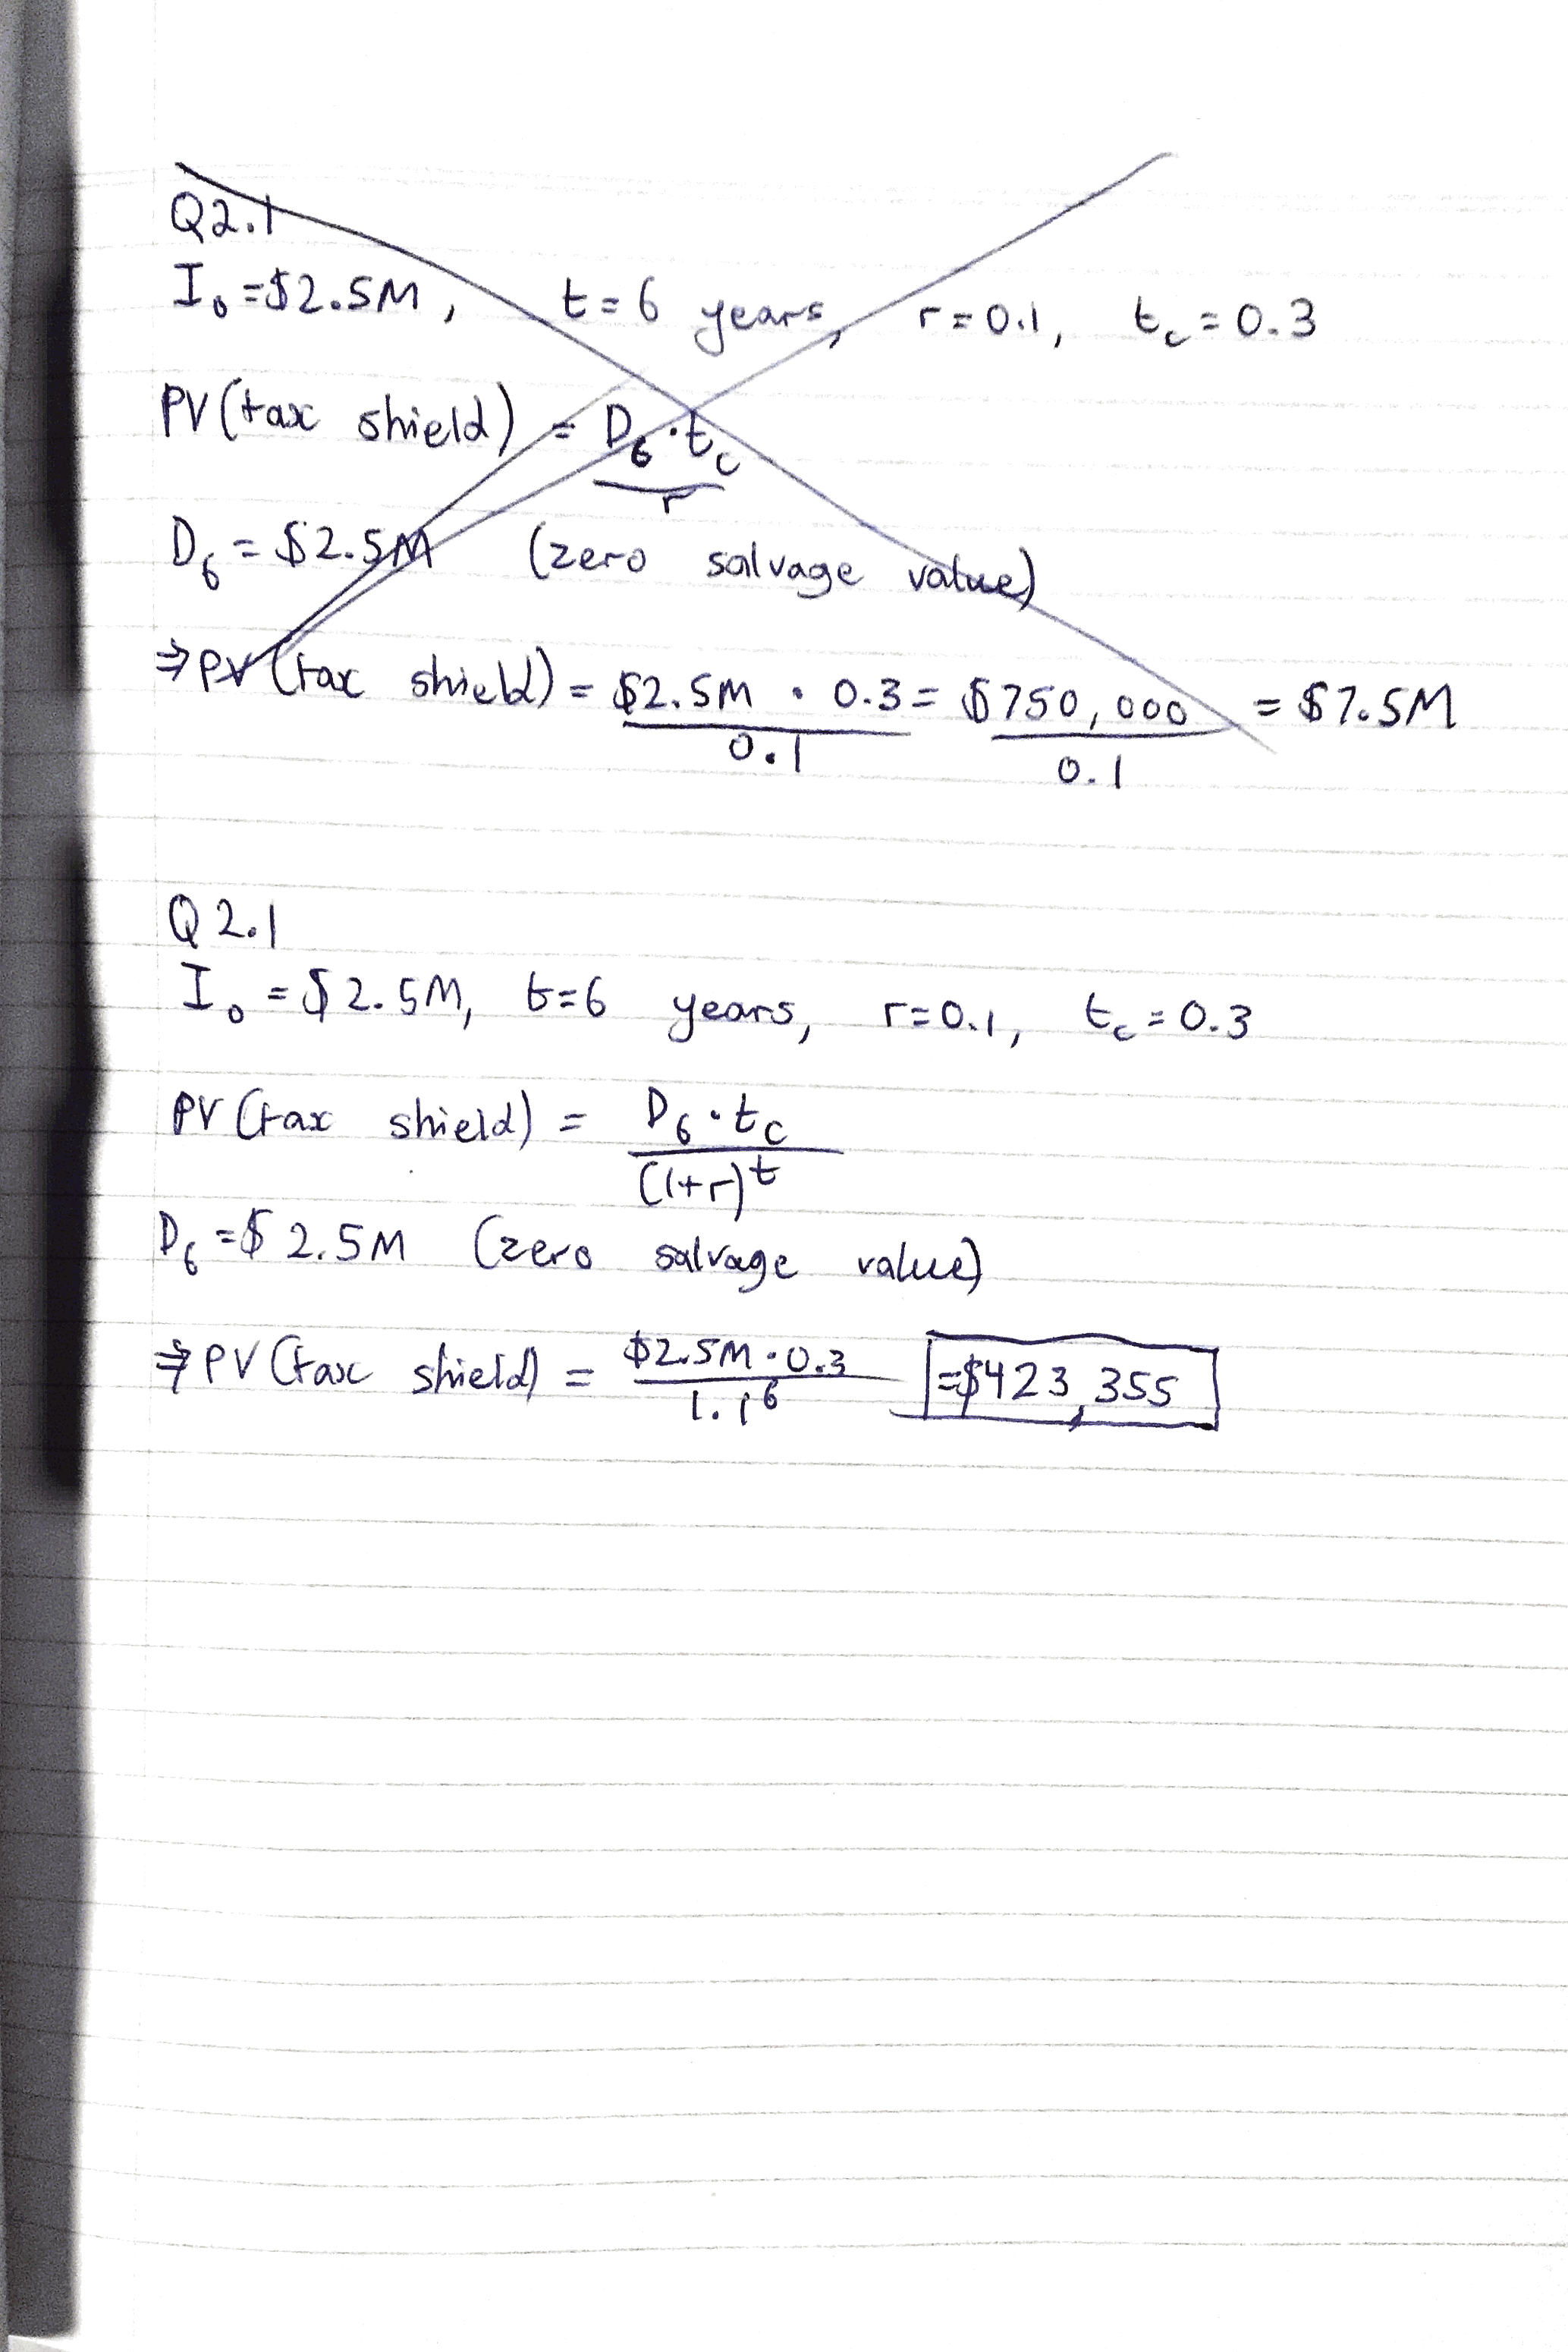 Q2.1
I₀ = $2.5M, t = 6 years, r = 0.1, t_c = 0.3
PV (tax shield) = D₆ · t_c / r
D₆ = $2.5M (zero salvage value)
⇒ PV (tax shield) = $2.5M · 0.3 / 0.1 = $750,000 / 0.1 = $7.5M
Q2.1
I₀ = $2.5M, t=6 years, r=0.1, t_c = 0.3
PV (tax shield) = D₆ · t_c / (1+r)^t
D₆ = $2.5M (zero salvage value)
⇒ PV (tax shield) = $2.5M · 0.3 / 1.1⁶ = $423,355